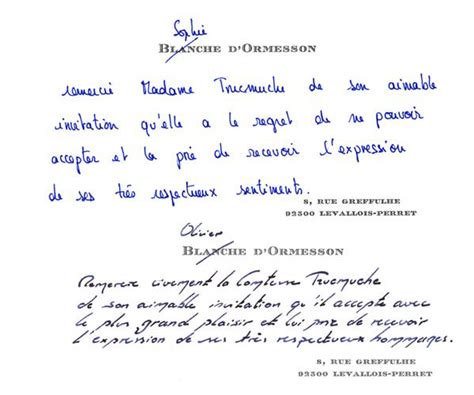 Sophie
BLANCHE D'ORMESSON
remercie Madame Trucmuche de son aimable
invitation qu'elle a le regret de ne pouvoir
accepter et la prie de recevoir l'expression
de ses très respectueux sentiments.
8, RUE GREFFULHE
92300 LEVALLOIS-PERRET
Olivier
BLANCHE D'ORMESSON
Remercie vivement la Comtesse Trucmuche
de son aimable invitation qu'il accepte avec
le plus grand plaisir et lui prie de recevoir
l'expression de ses très respectueux hommages.
8, RUE GREFFULHE
92300 LEVALLOIS-PERRET